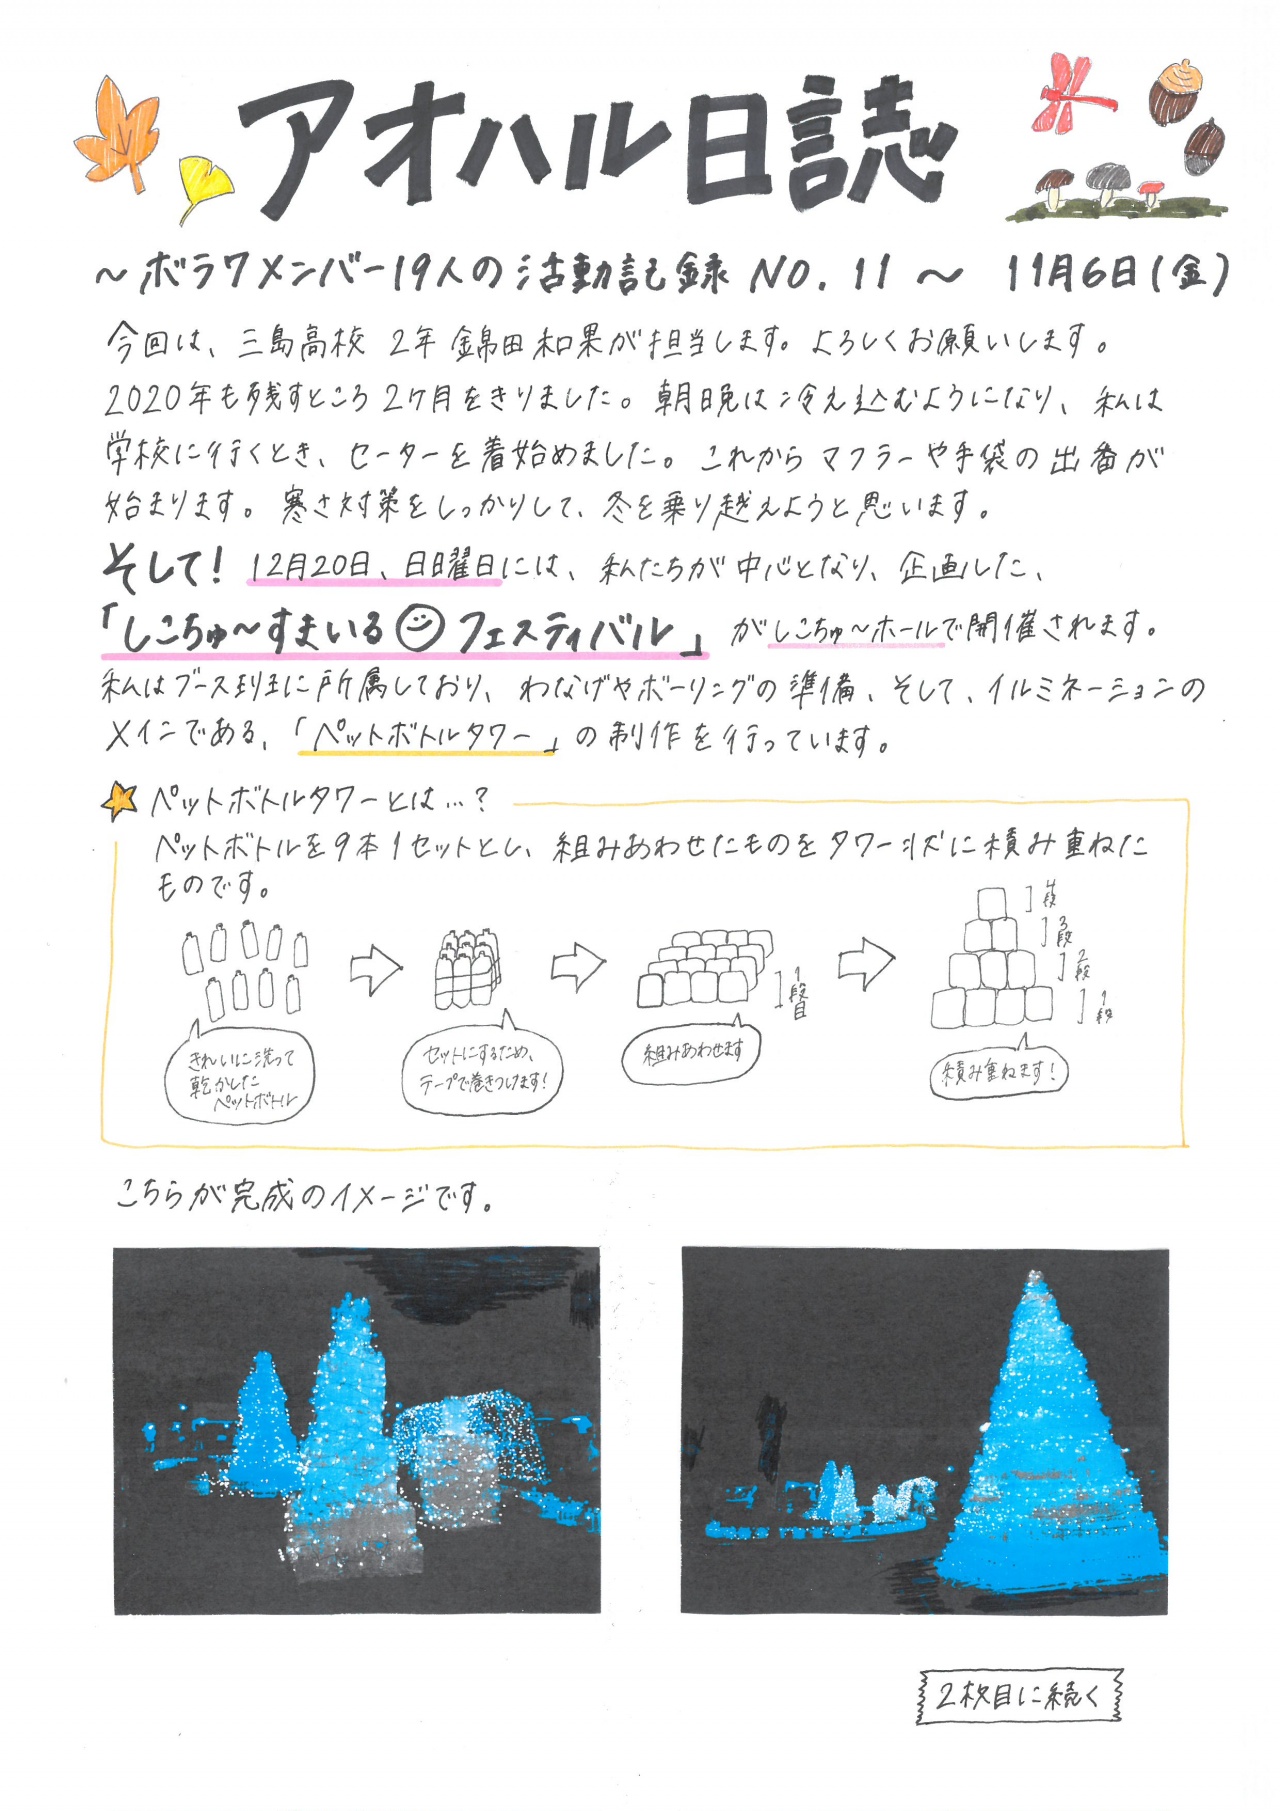 アオハル日誌
～ボラワメンバー19人の活動記録 NO.11～ 11月6日(金)
今回は、三島高校 2年 錦田和果が担当します。よろしくお願いします。
2020年も残すところ2ケ月をきりました。朝晩は冷え込むようになり、私は
学校に行くとき、セーターを着始めました。これからマフラーや手袋の出番が
始まります。寒さ対策をしっかりして、冬を乗り越えようと思います。
そして！12月20日、日曜日には、私たちが中心となり、企画した、
「しこちゅ～すまいる☺フェスティバル」がしこちゅ～ホールで開催されます。
私はブース班に所属しており、わなげやボーリングの準備、そして、イルミネーションの
メインである、「ペットボトルタワー」の制作を行っています。
ペットボトルタワーとは…？
ペットボトルを9本1セットとし、組みあわせたものをタワー状に積み重ねた
ものです。
4段
3段
2段
1段
1段目
きれいに洗って
乾かした
ペットボトル
セットにするため、
テープで巻きつけます！
組みあわせます
積み重ねます！
こちらが完成のイメージです。
2枚目に続く